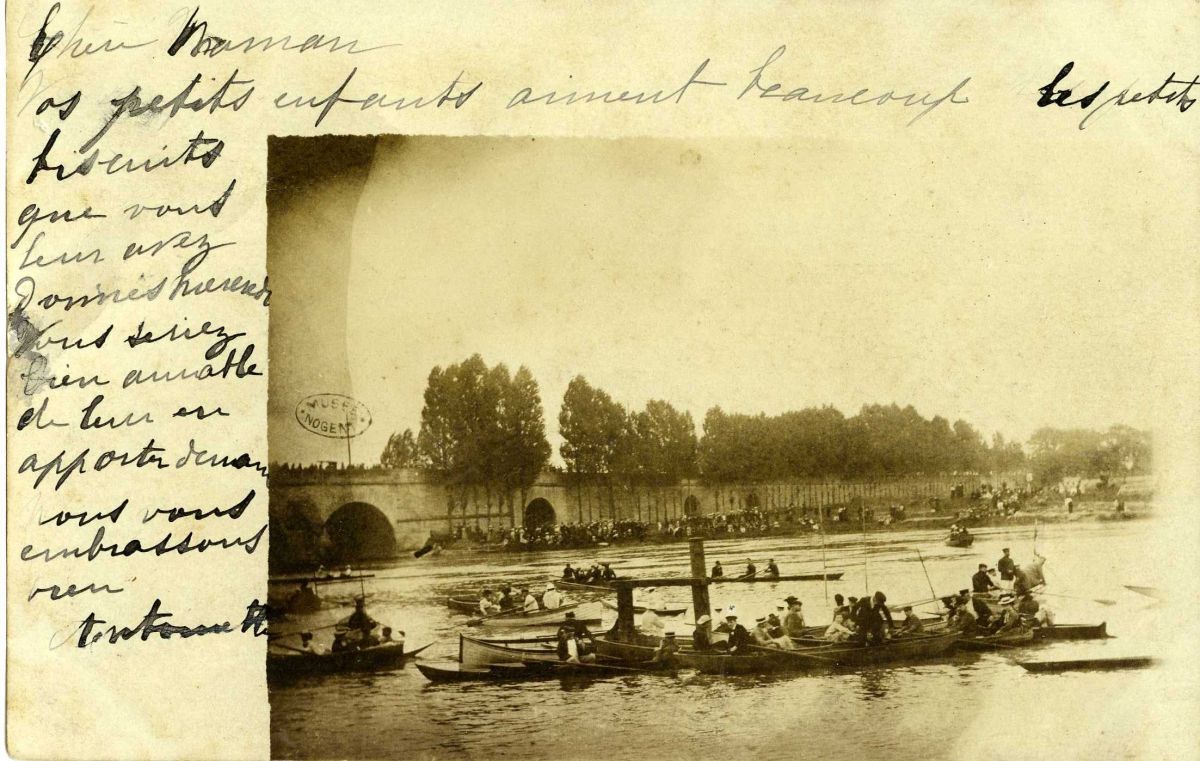 Chère Maman
Vos petits enfants aiment beaucoup les petits
biscuits
que vous
leur avez
donnés
Vous seriez
bien aimable
de leur en
apporter demain
nous vous
embrassons
bien
Antoinette
MUSÉE
NOGENT